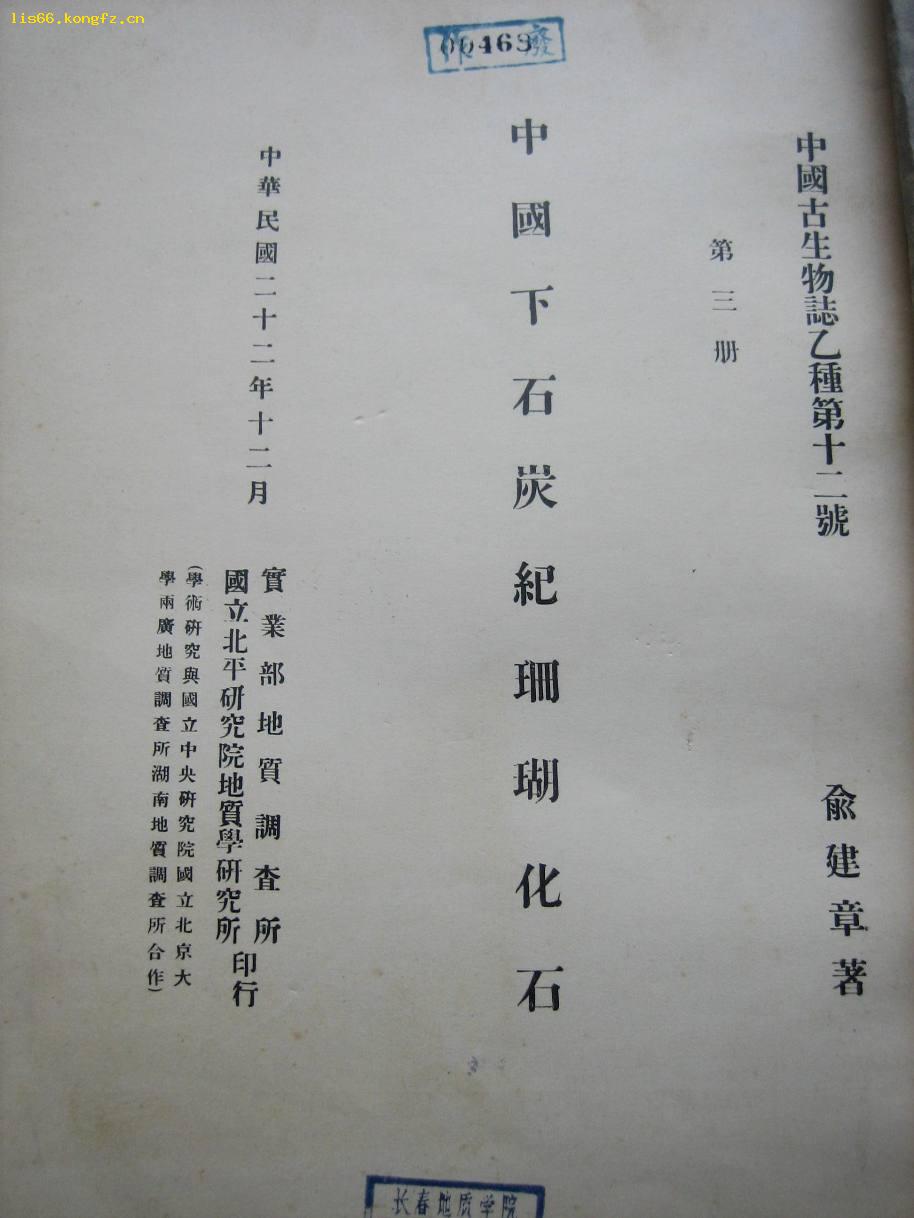 lis66.kongfz.cn
00463
作廢
中國古生物誌乙種第十二號
第三册
俞建章著
中國下石炭紀珊瑚化石
中華民國二十二年十二月
實業部地質調査所
國立北平研究院地質學研究所
印行
(學術研究與國立中央研究院國立北京大
學兩廣地質調査所湖南地質調査所合作)
长春地质学院